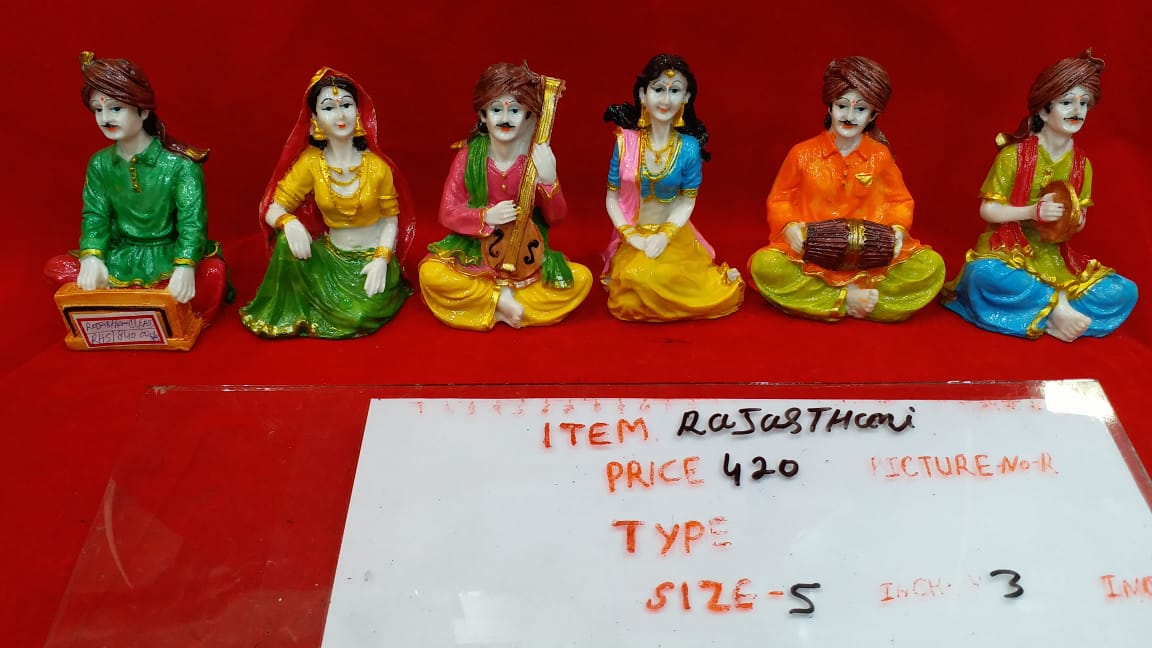 RAS/840
ITEM RAJASTHani
PRICE 420 PICTURE-No-R
TYPE
SIZE-5 INCH 3 INC